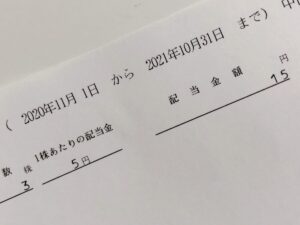 ( 2020年11月 1日 から 2021年10月31日 まで) 中
配 当 金 額
円
15
数 株 1株あたりの配当金
3 5円